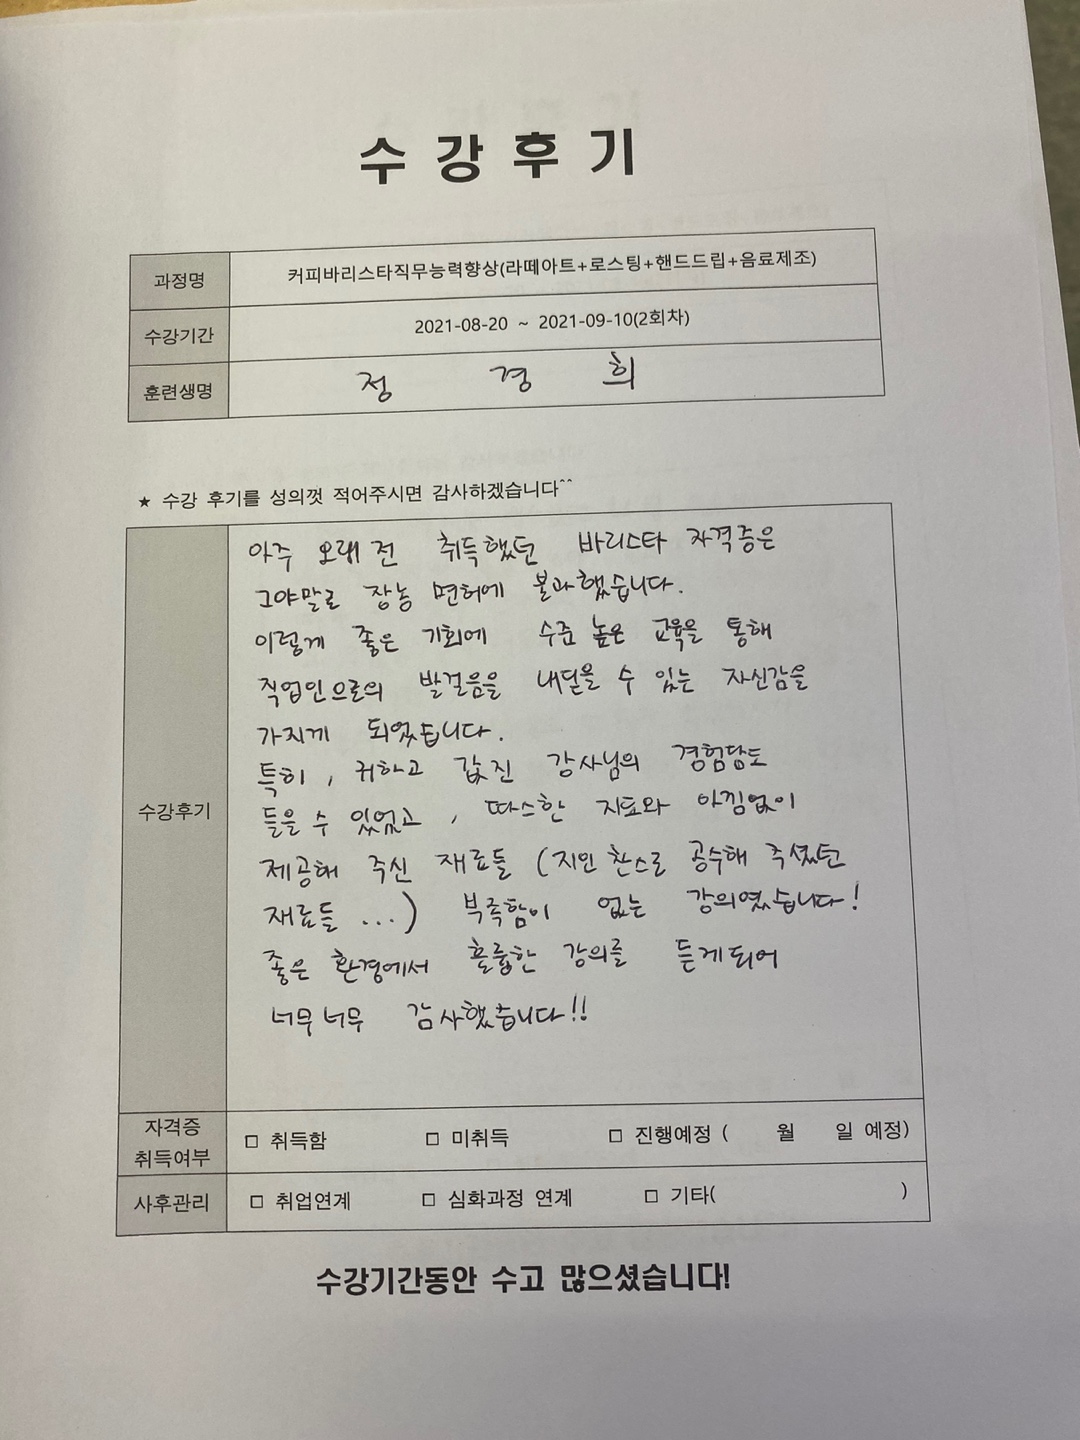 수강후기
과정명 커피바리스타직무능력향상(라떼아트+로스팅+핸드드립+음료제조)
수강기간 2021-08-20 ~ 2021-09-10(2회차)
훈련생명 정 경 희
★ 수강 후기를 성의껏 적어주시면 감사하겠습니다^^
아주 오래 전 취득했던 바리스타 자격증은
그야말로 장농 면허에 불과했습니다.
이렇게 좋은 기회에 수준 높은 교육을 통해
직업인으로의 발걸음을 내딛을 수 있는 자신감을
가지게 되었습니다.
특히, 귀하고 값진 강사님의 경험담도
수강후기
들을 수 있었고, 따스한 지도와 아낌없이
제공해 주신 재료들 (지인 찬스로 공수해 주셨던
재료들 ...) 부족함이 없는 강의였습니다!
좋은 환경에서 훌륭한 강의를 듣게되어
너무너무 감사했습니다!!
자격증
취득여부
□ 취득함 □ 미취득 □ 진행예정 ( 월 일 예정)
사후관리 □ 취업연계 □ 심화과정 연계 □ 기타( )
수강기간동안 수고 많으셨습니다!